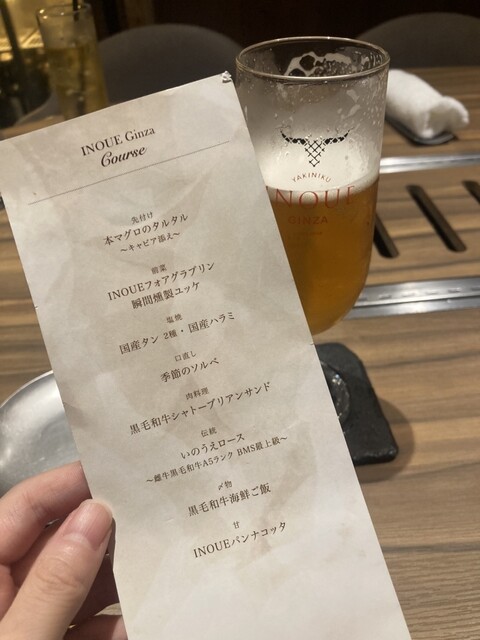 INOUE Ginza
Course
先付け
本マグロのタルタル
〜キャビア添え〜
前菜
INOUEフォアグラプリン
瞬間燻製ユッケ
塩焼
国産タン 2種・国産ハラミ
口直し
季節のソルベ
肉料理
黒毛和牛シャトーブリアンサンド
伝統
いのうえロース
〜雌牛黒毛和牛A5ランク BMS最上級〜
〆物
黒毛和牛海鮮ご飯
甘
INOUEパンナコッタ
YAKINIKU
INOUE
GINZA